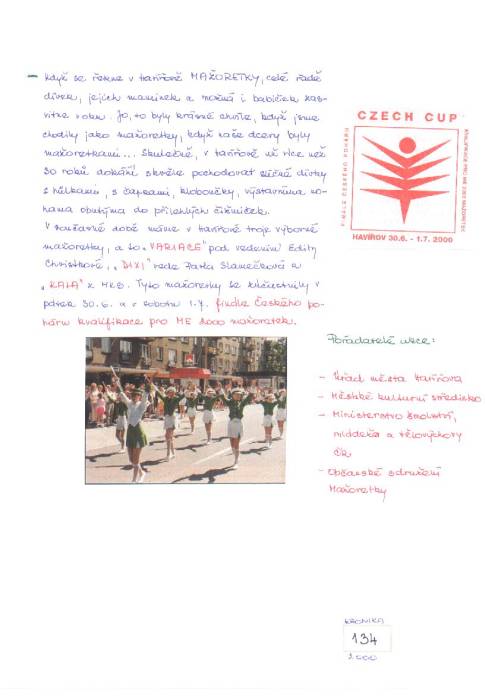 - Když se řekne v Karviné MAŽORETKY, celé řadě
dívek, jejich maminek a možná i babiček zas-
vitne v oku. Jo, to byly krásné chvíle, když jsme
chodily jako mažoretky, když naše dcery byly
mažoretkami... Skutečně, v Karviné už více než
30 roků dokáží skvěle pochodovat slečné dívky
s hůlkami, s čapkami, kloboučky, výstavníma no-
hama obutýma do přilehlých čižmiček.
V současné době máme v Karviné troje výborné
mažoretky, a to "VARIACE" pod vedením Edity
"DIXI" vede Pavla Slaměčková a
z MKD. Tyto mažoretky se zúčastnily v
pátek 30.6. a v sobotu 1.7. finále Českého po-
háru kvalifikace pro ME 2000 mažoretek.
CZECH CUP
FINÁLE ČESKÉHO POHÁRU
HAVÍŘOV 30.6. - 1.7. 2000
Pořadatelé akce:
- Úřad města Karviná
- Městské kulturní středisko
- Ministerstvo školství,
mládeže a tělovýchovy
ČR
- Občanské sdružení
Mažoretky
KRONIKA
134
2000